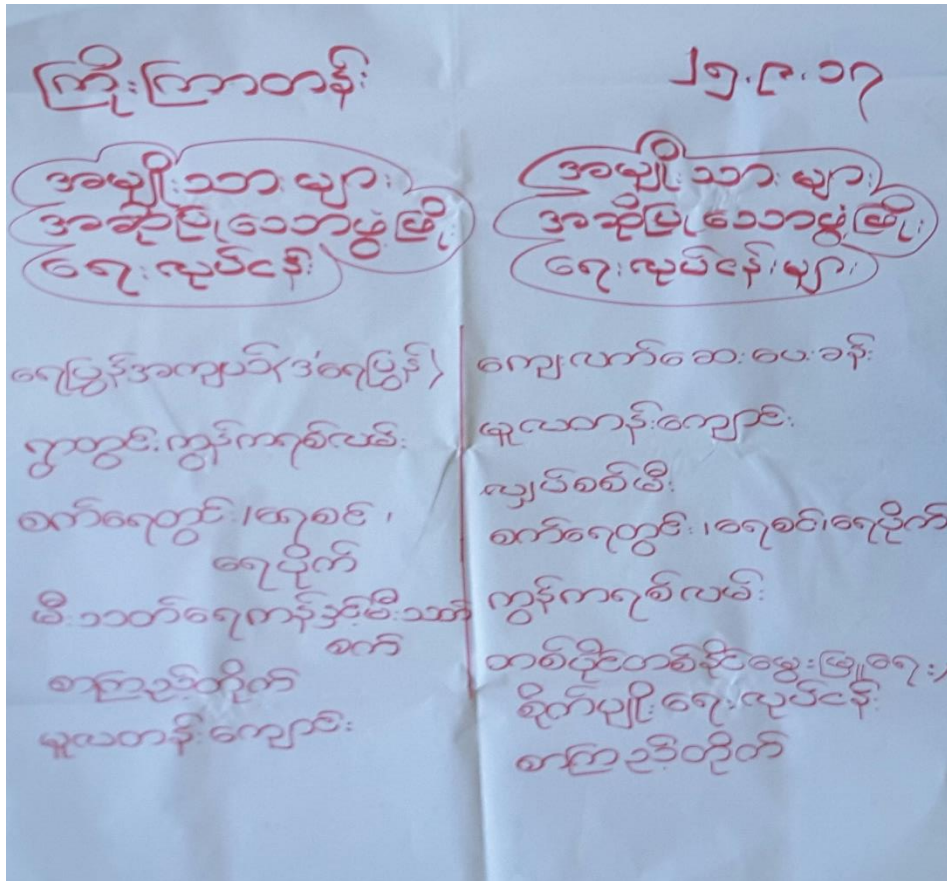 ကြိုးကြာတန်း
၂၅.၉.၁၇
အမျိုးသားများ
အဆိုပြုသောဖွံ့ဖြိုး
ရေးလုပ်ငန်း
ရေပြွန်အကျယ်(ဒုံရေပြွန်)
ရွာတွင်းကွန်ကရစ်လမ်း
စက်ရေတွင်း၊ရေစင်၊
ရေပိုက်
မီးသတ်ရေကန်နှင့်မီးသတ်
စက်
စာကြည့်တိုက်
မူလတန်းကျောင်း
အမျိုးသားများ
အဆိုပြုသောဖွံ့ဖြိုး
ရေးလုပ်ငန်းများ
ကျေးလက်ဆေးပေးခန်း
မူလတန်းကျောင်း
လျှပ်စစ်မီး
စက်ရေတွင်း၊ရေစင်၊ရေပိုက်
ကွန်ကရစ်လမ်း
တစ်ပိုင်တစ်နိုင်မွေးမြူရေး၊
စိုက်ပျိုးရေးလုပ်ငန်း
စာကြည့်တိုက်